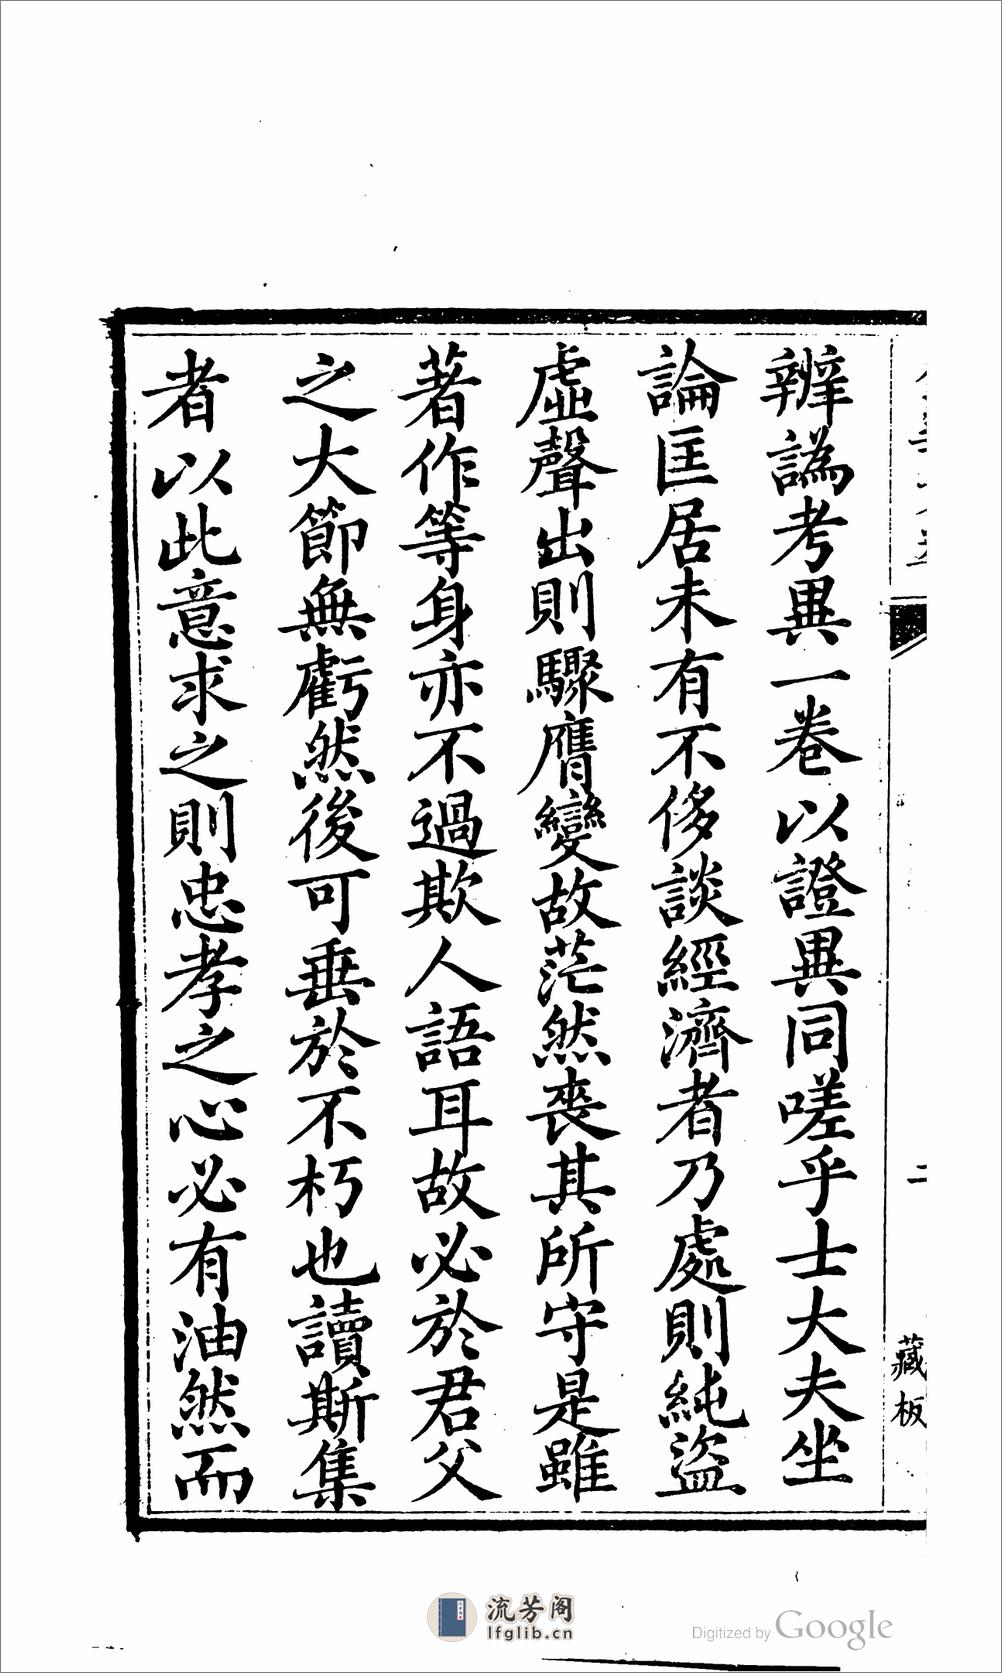 辨譌考異一卷以證異同嗟乎士大夫坐
論匡居未有不侈談經濟者乃處則純盜
虛聲出則驟膺變故茫然喪其所守是雖
著作等身亦不過欺人語耳故必於君父
之大節無虧然後可垂於不朽也讀斯集
者以此意求之則忠孝之心必有油然而
二
藏板
流芳阁
lfglib.cn
Digitized by Google